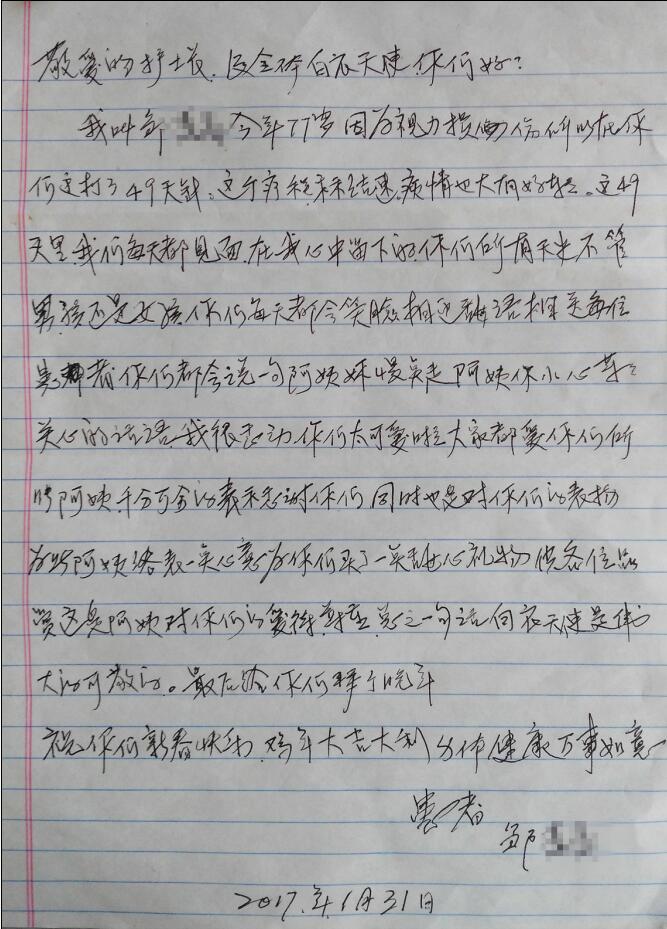 敬爱的护士长.及全体白衣天使.你们好?
我叫邹 今年77岁因为视力损伤所以在你
们这打了49天针.这个疗程未未结速.疾情也大有好转.这49
天里.我们每天都见面.在我心中留下的.你们所有天使不管
男孩还是女孩.你们每天都会笑脸相迎甜语相送每位
患者你们都会说一句阿姨您慢点走阿姨你小心等
关心的话语.我很感动.你们太可爱啦大家都爱你们所
以阿姨十分万分的表示感谢你们同时也是对你们的表扬
为此阿姨略表一点心意为你们买了一点甜心礼物供各位品
尝这是阿姨对你们的爱 总之一句话白衣天使是伟
大的可敬的。最后给你们拜个晚年
祝你们新春快乐.鸡年大吉大利 身体健康万事如意
患者
邹
2017.年.1月31日